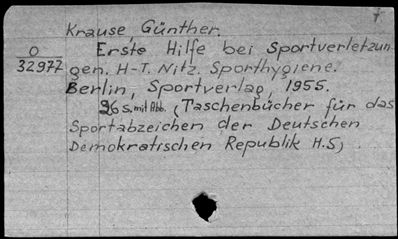 Krause, Günther.
O
32977
Erste Hilfe bei Sportverletzun-
gen. H-T. Nitz. Sporthygiene.
Berlin, Sportverlag, 1955.
96 S. mit Abb. (Taschenbücher für das
Sportabzeichen der Deutschen
Demokratischen Republik H.5)